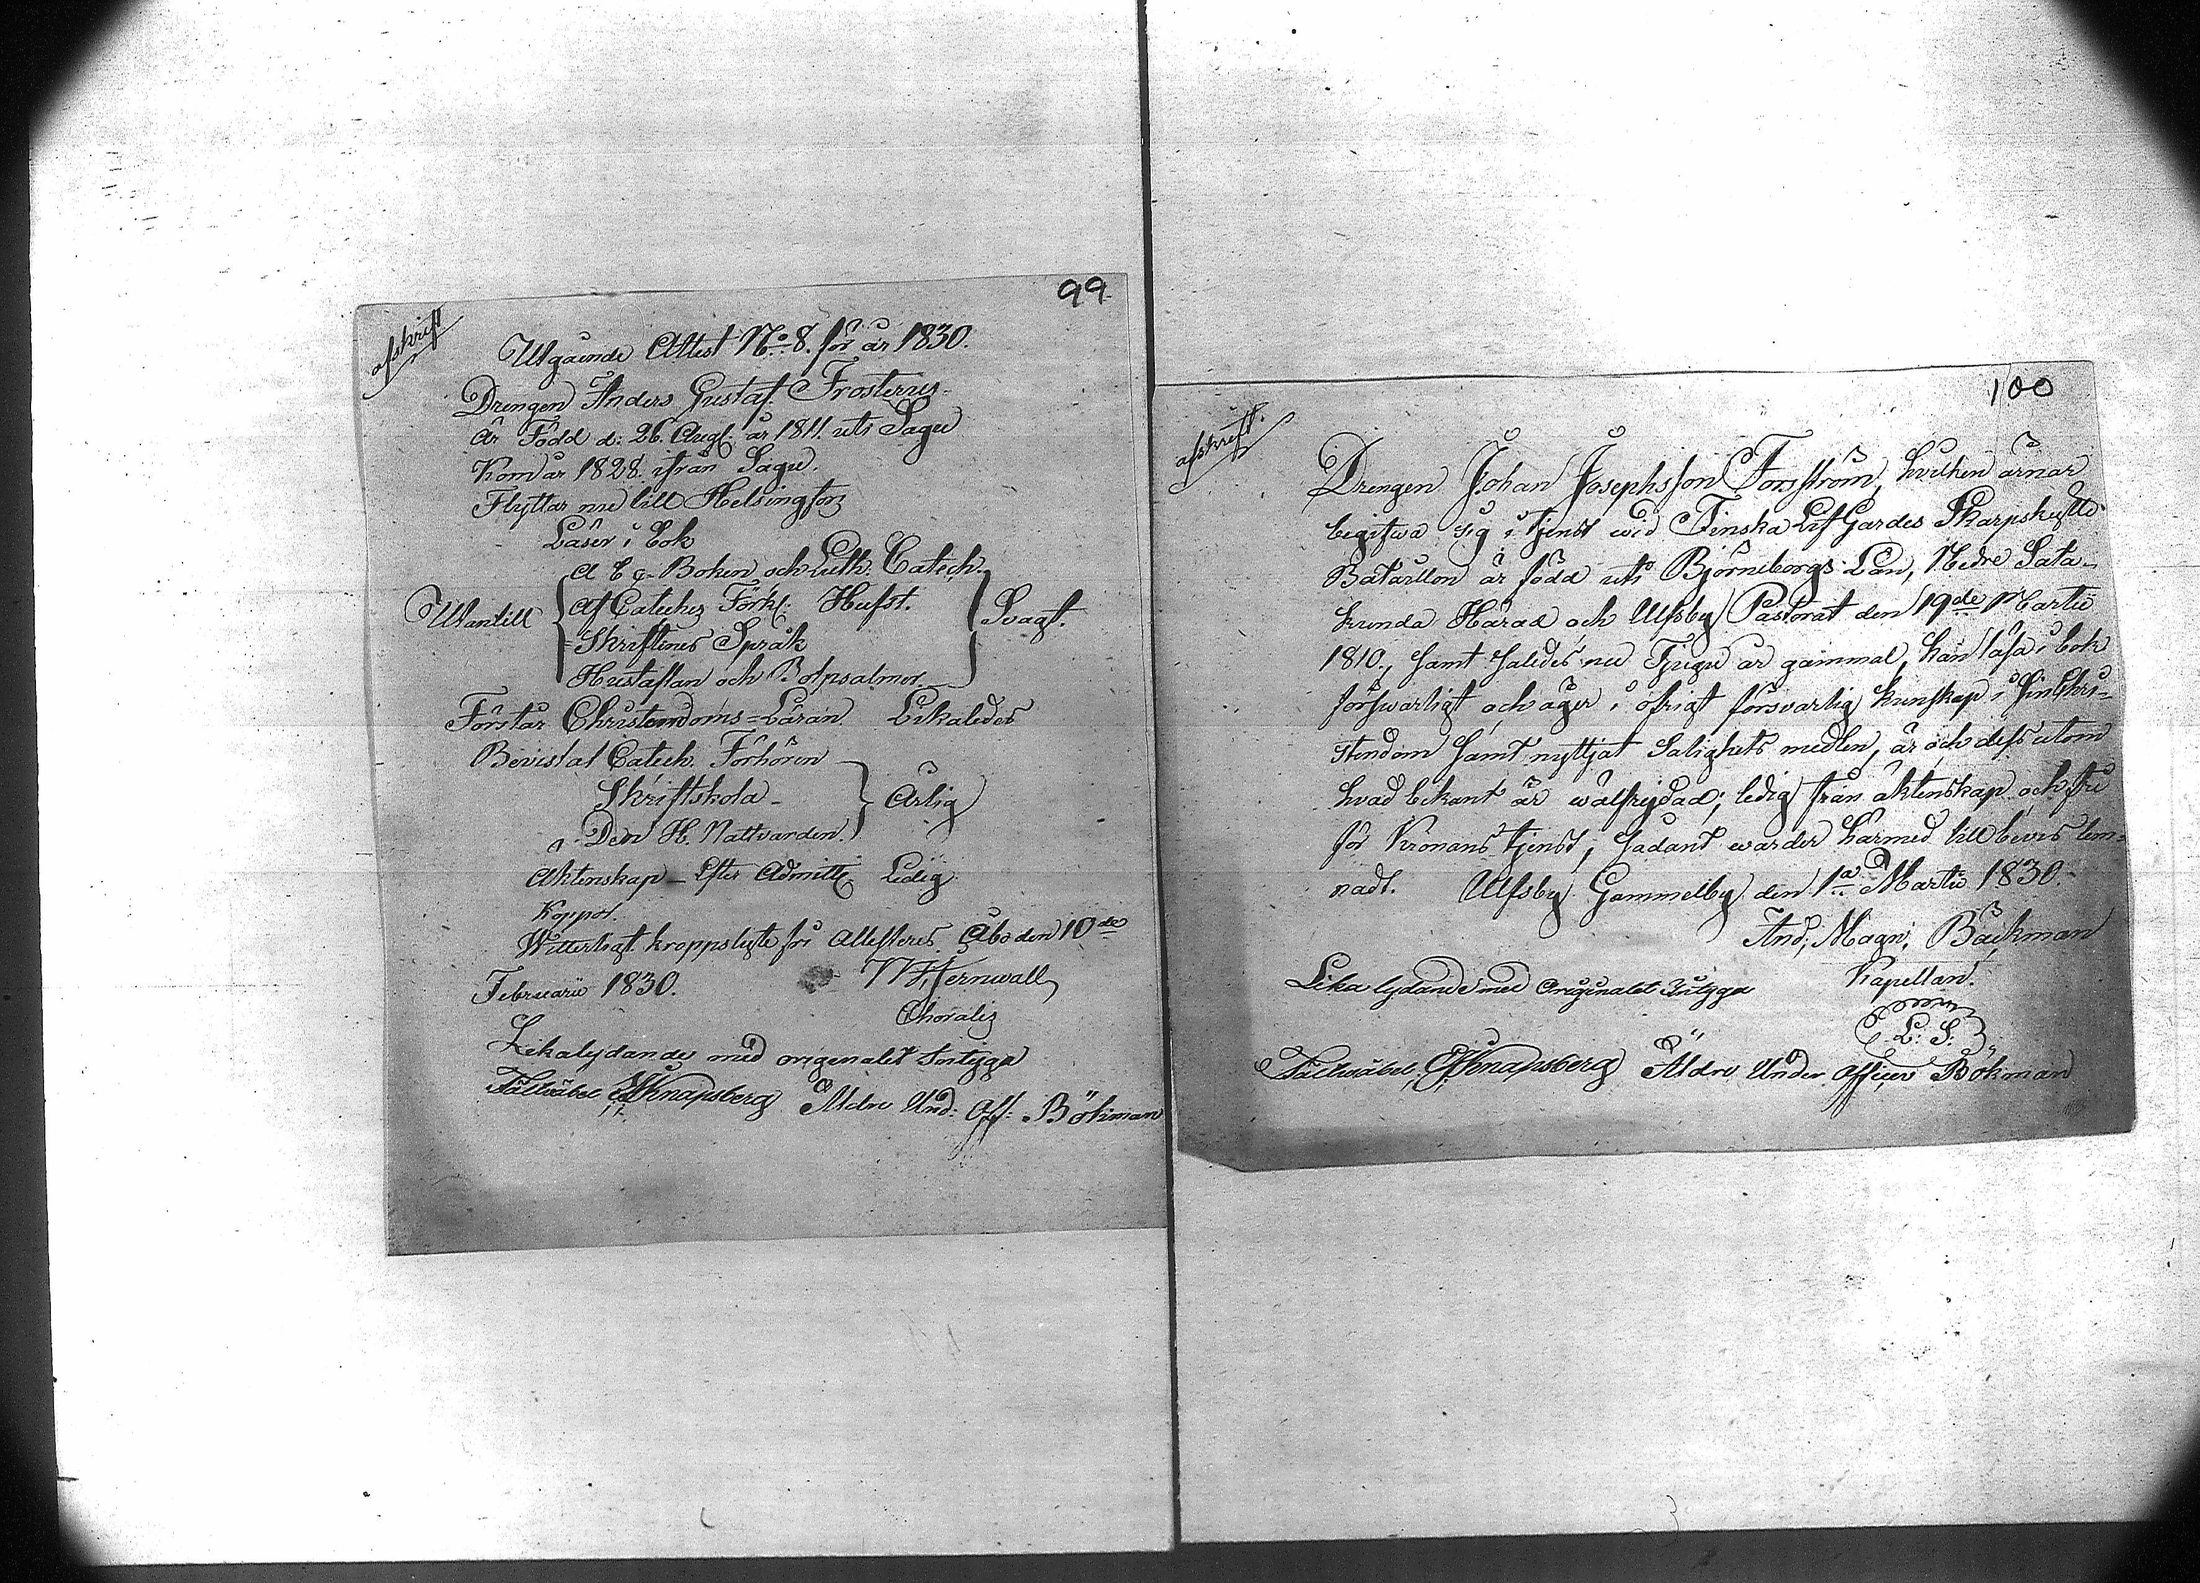 99
afskrift
Utgående Attest No 8. för år 1830.
Drengen Anders Gustaf Frosterus
är Född d: 26. Aug. år 1811. uti Sagu
Kom år 1828. ifrån Sagu.
Flyttar nu till Helsingfors
Läser i bok
A b c-Boken och Luth. Catech.
Utantill Af Cateches Förkl: Hufst. Svagt.
Skriftenes Språk
Hustaflan och Botpsalmer
Förstår Christendoms=Läran Likaledes
Bevistat Catech. Förhören
Skriftskola Årlig
Den H. Nattvarden
Äktenskap Efter Ledig
Koppor.
Witterligt kroppslyte för Attesteres Åbo den 10de
Februarii 1830. Hernwall
Choralis
Likalydande med originalet intyga
Fältväbel Knapsberg Äldre Und: Off: Bökman
100
afskrift.
Drengen Johan Josephsson Forsström, hvilken ärnar
begifwa sig i tjenst wid Finska Lif Gardes Skarpskytte
Bataillon är född uti Björneborgs Län, Nedre Sata-
kunda Härad och Ulfsby Pastorat den 19de Martii
1810, samt således nu Tjugu år gammal, kan läsa i bok
förswarligt och äger i öfrigt försvarlig kunskap i sin Chri-
stendom samt nyttjat Salighets medlen, är och dess utom
hvad bekant är wälfrejdad; ledig från äktenskap och fri
för Kronans tjenst; sådant warder härmed till bevis lem-
nadt. Ulfsby Gammelby den 1a Martii 1830.
And: Magn: Bäckman
Kapellan.
Lika lydande med Originalet Intyga
L. S.
Fältväbel: Knapsberg Äldre Under Officer Bökman